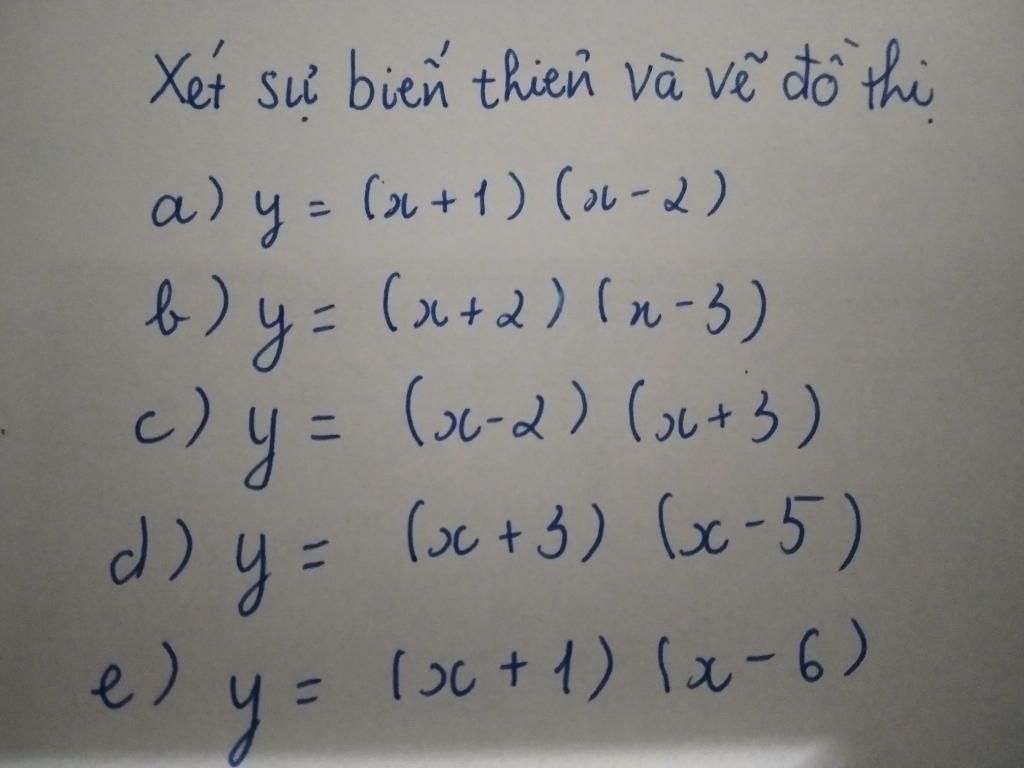 Xét sự biến thiên và vẽ đồ thị
a) y = (x + 1) (x - 2)
b) y = (x + 2) (x - 3)
c) y = (x - 2) (x + 3)
d) y = (x + 3) (x - 5)
e) y = (x + 1) (x - 6)